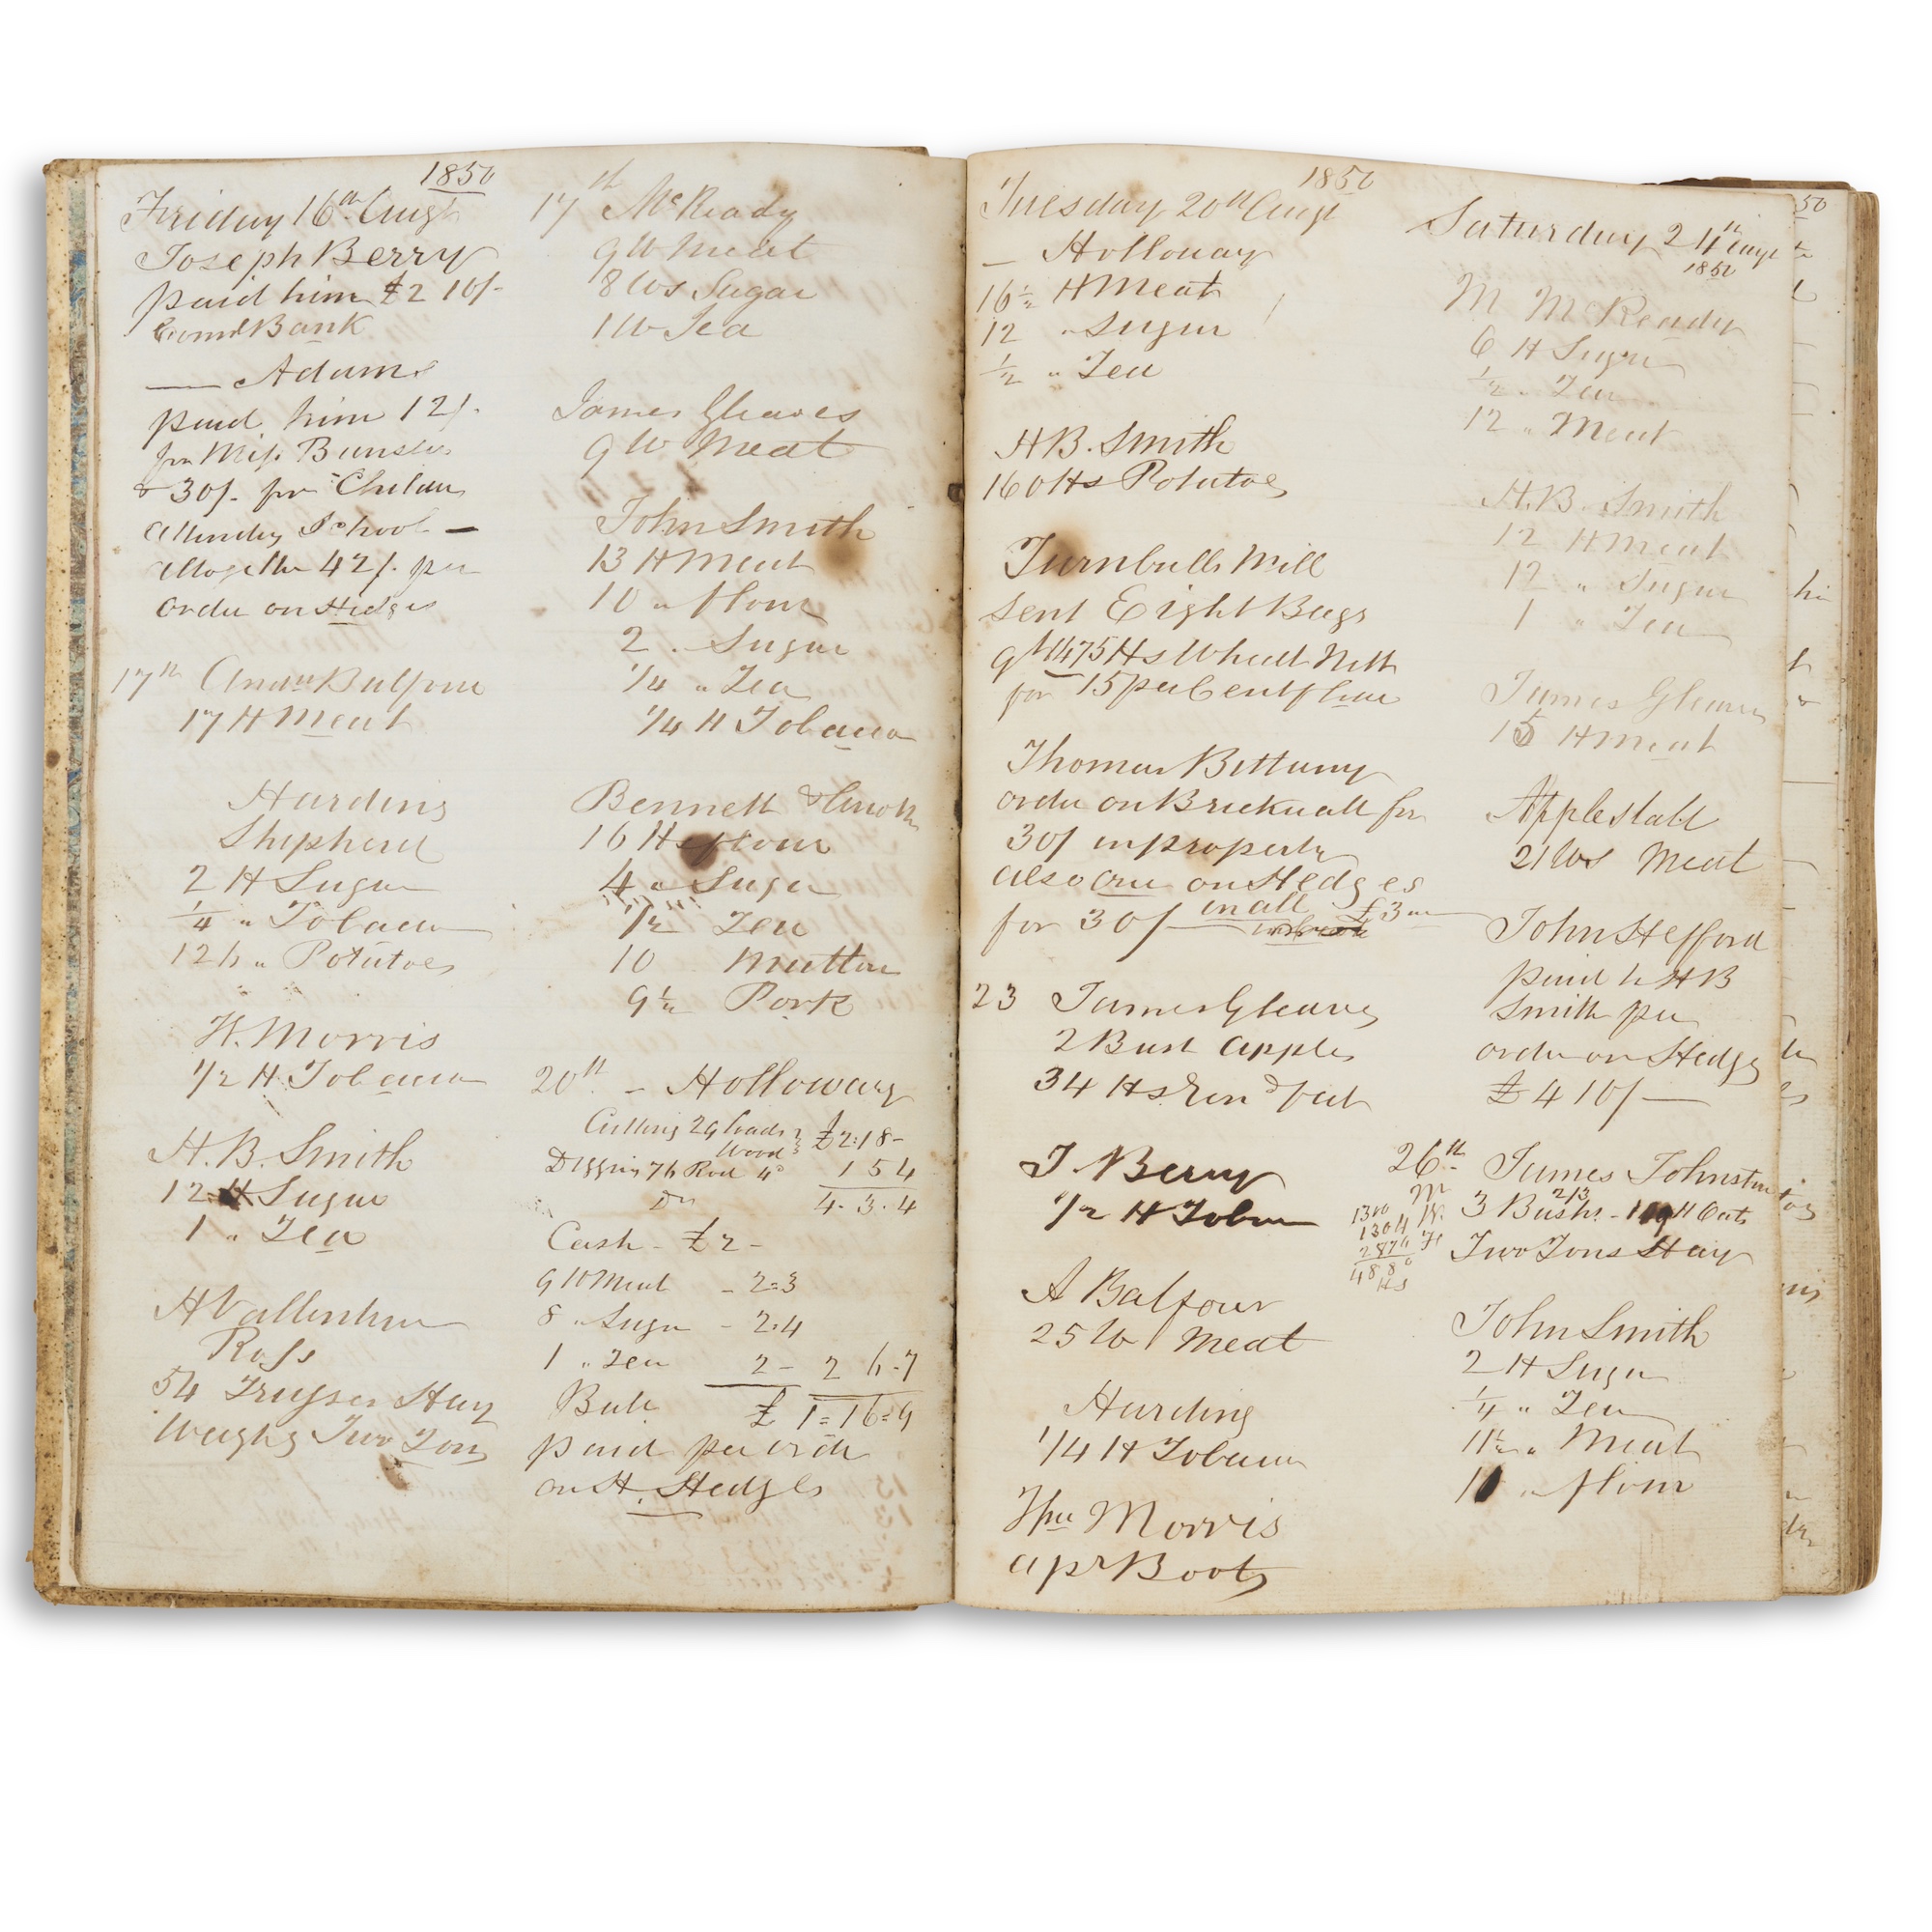 1850
Friday 16th Augt
Joseph Berry
paid him £2 10/-
Coml Bank
— Adams
paid him 12/-
for Miss Bunster
& 30/- for Children
attending School —
altogether 42/- per
order on Hedges
17th Andw Balfour
17 lb Meat
Harding
Shepherd
2 lb Sugar
1/4 " Tobacco
126 " Potatoes
W. Morris
1/2 lb Tobacco
H. B. Smith
12 lb Sugar
1 " Tea
H Vallentine
Ross
54 Trusses Hay
Weighg Two Tons
17th McReady
9 lb Meat
8 lbs Sugar
1 lb Tea
James Gleaves
9 lb Meat
John Smith
13 lb Meat
10 " flour
2 " Sugar
1/4 " Tea
1/4 lb Tobacco
Bennett &
16 lbs flour
4 " Sugar
1/2 Tea
10 Mutton
9 1/2 Pork
20th — Holloway
Cutting 29 loads Wood £2:18-
Digging 76 Rod 4d 1 5 4
Do 4-3-4
Cash - £2 -
9 lb Meat - 2=3
8 " Sugar - 2=4
1 " Tea 2- 2 6-7
Bale £1=16=9
paid per order
on H. Hedges
1850
Tuesday 20th Augt
— Holloway
16 1/2 lb Meat
12 " Sugar
1/2 " Tea
H B. Smith
160 lbs Potatoes
Turnbulls Mill
Sent Eight Bags
1475 lbs Wheat Nett
for 15 per Cent flour
Thomas Bettany
order on Bricknall for
30/ in property
also one on Hedges
for 30/— in all £3
23 James Gleaves
2 Bush Apples
34 lbs fat
J. Berry
1/2 lb Tobacco
A Balfour
25 lb Meat
Harding
1/4 lb Tobacco
Wm Morris
a pr Boots
Saturday 24th Augt
1850
M McReady
6 lb Sugar
1/2 " Tea
12 " Meat
H.B. Smith
12 lb Meat
12 " Sugar
1 " Tea
James Gleaves
15 lb Meat
Applestall
21 lbs Meat
John Hefford
paid to H B
Smith per
order on Hedges
£4 10/—
26th James Johnston
3 Bushs lb Oats
Two Tons Hay
John Smith
2 lb Sugar
1/4 " Tea
11 1/2 " Meat
10 " flour